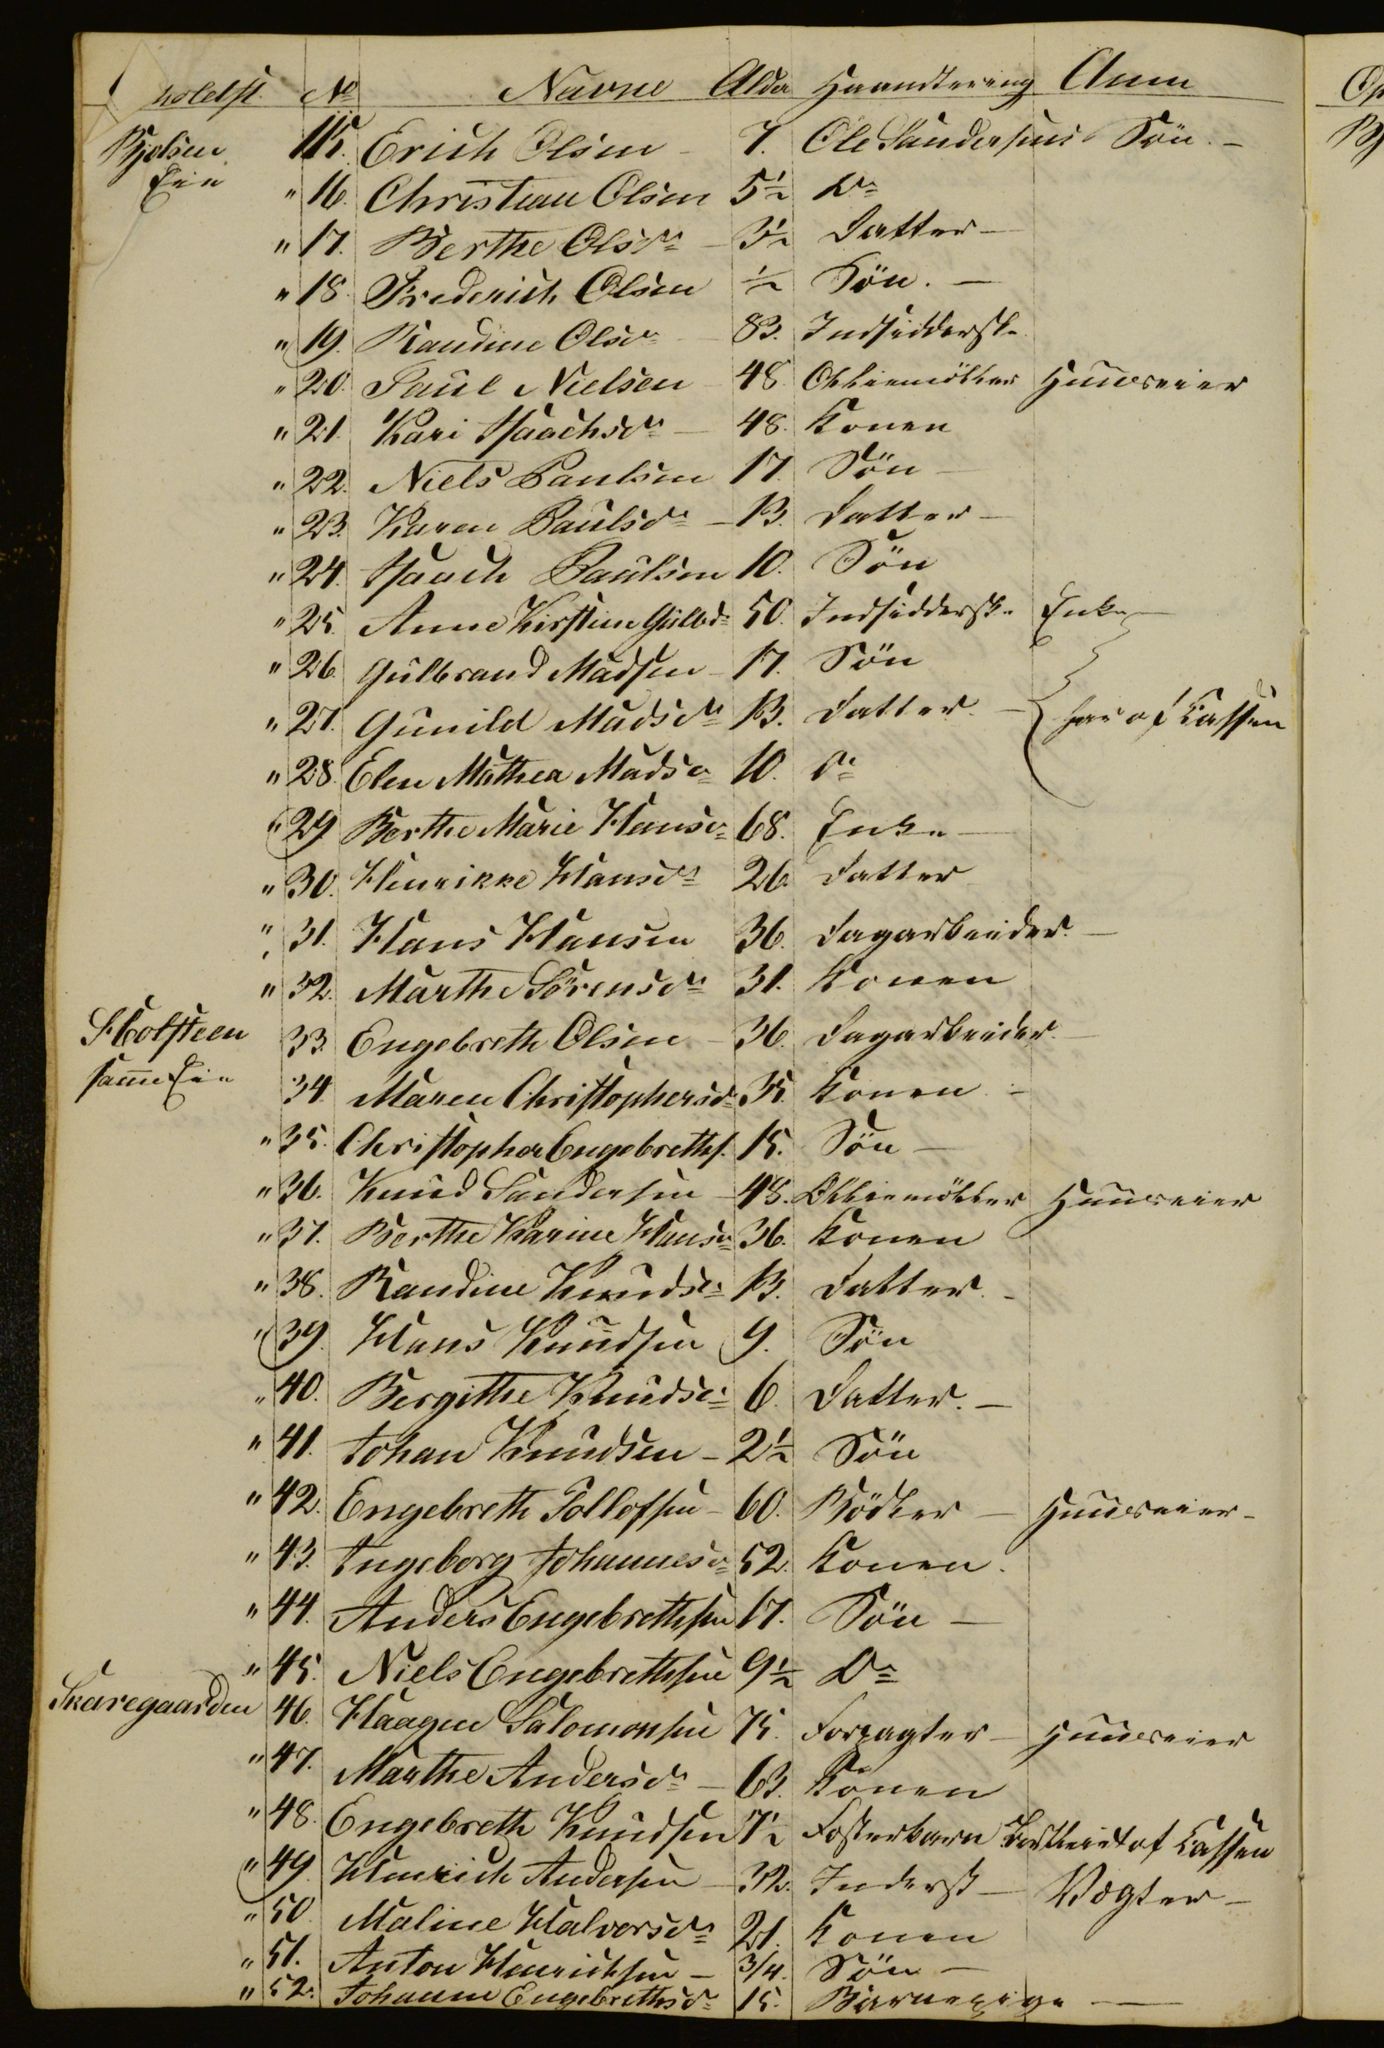 holdst. No Navne Alder Haandtering Anm
Bjølsen 15. Erich Olsen 7. Ole Sandersens Søn. —
Eie " 16. Christian Olsen 5½ Do
" 17. Berthe Olsdr — 3½ Datter —
" 18. Frederich Olsen ½ Søn. —
" 19. Randine Olsdr 83. Indsidderske
" 20. Paul Nielsen 48. Olliemøller Huuseier
" 21. Kari Isaachsdr — 48. Konen
" 22. Niels Paulsen 17. Søn —
" 23. Karen Paulsdr — 13. Datter —
" 24. Isaach Paulsen 10. Søn
" 25. Anne Kirstine Gulbdr 50. Indsidderske Enke —
" 26. Gulbrand Madsen — 17. Søn
" 27. Gunild Madsdr 13. Datter. — har af Cassen
" 28. Elen Mathea Madsdr 10. Do
" 29. Berthe Marie Hansdr 68. Enke —
" 30. Henrikke Hansdr 26. Datter
" 31. Hans Hansen 36. Dagarbeider. —
" 32. Marthe Sörensdr 31. Konen
33. Engebreth Olsen — 36. Dagarbeider. —
samme Eie 34. Maren Christophersdr 35. Konen. —
" 35. Christopher Engebreths. 15. Søn —
" 36. Knud Sandersen — 48. Olliemøller Huuseier
" 37. Berthe Karine Hansdr 36. Konen
" 38. Randine Knudsdr 13. Datter. —
" 39. Hans Knudsen 9. Søn
" 40. Bergithe Knudsdr 6. Datter. —
" 41. Johan Knudsen — 2½ Søn
" 42. Engebreth Tollofsen — 60. Bødker — Huuseier —
" 43. Ingeborg Johannesdr 52. Konen.
" 44. Anders Engebrethsen 17. Søn —
" 45. Niels Engebrethsen 9½ Do
Skaregaarden 46. Haagen Salomonsen 75. Forpagter — Huuseier
" 47. Marthe Andersdr — 63. Konen
" 48. Engebreth Knudsen 7½ Fosterbarn af Cassen
" 49. Henrich Andersen — 32. Inderst — Vægter —
" 50. Maline Halvorsdr 21. Konen
" 51. Anton Henrichsen — 3/4. Søn —
" 52. Johanne Engebrethsdr 15. Barnepige —